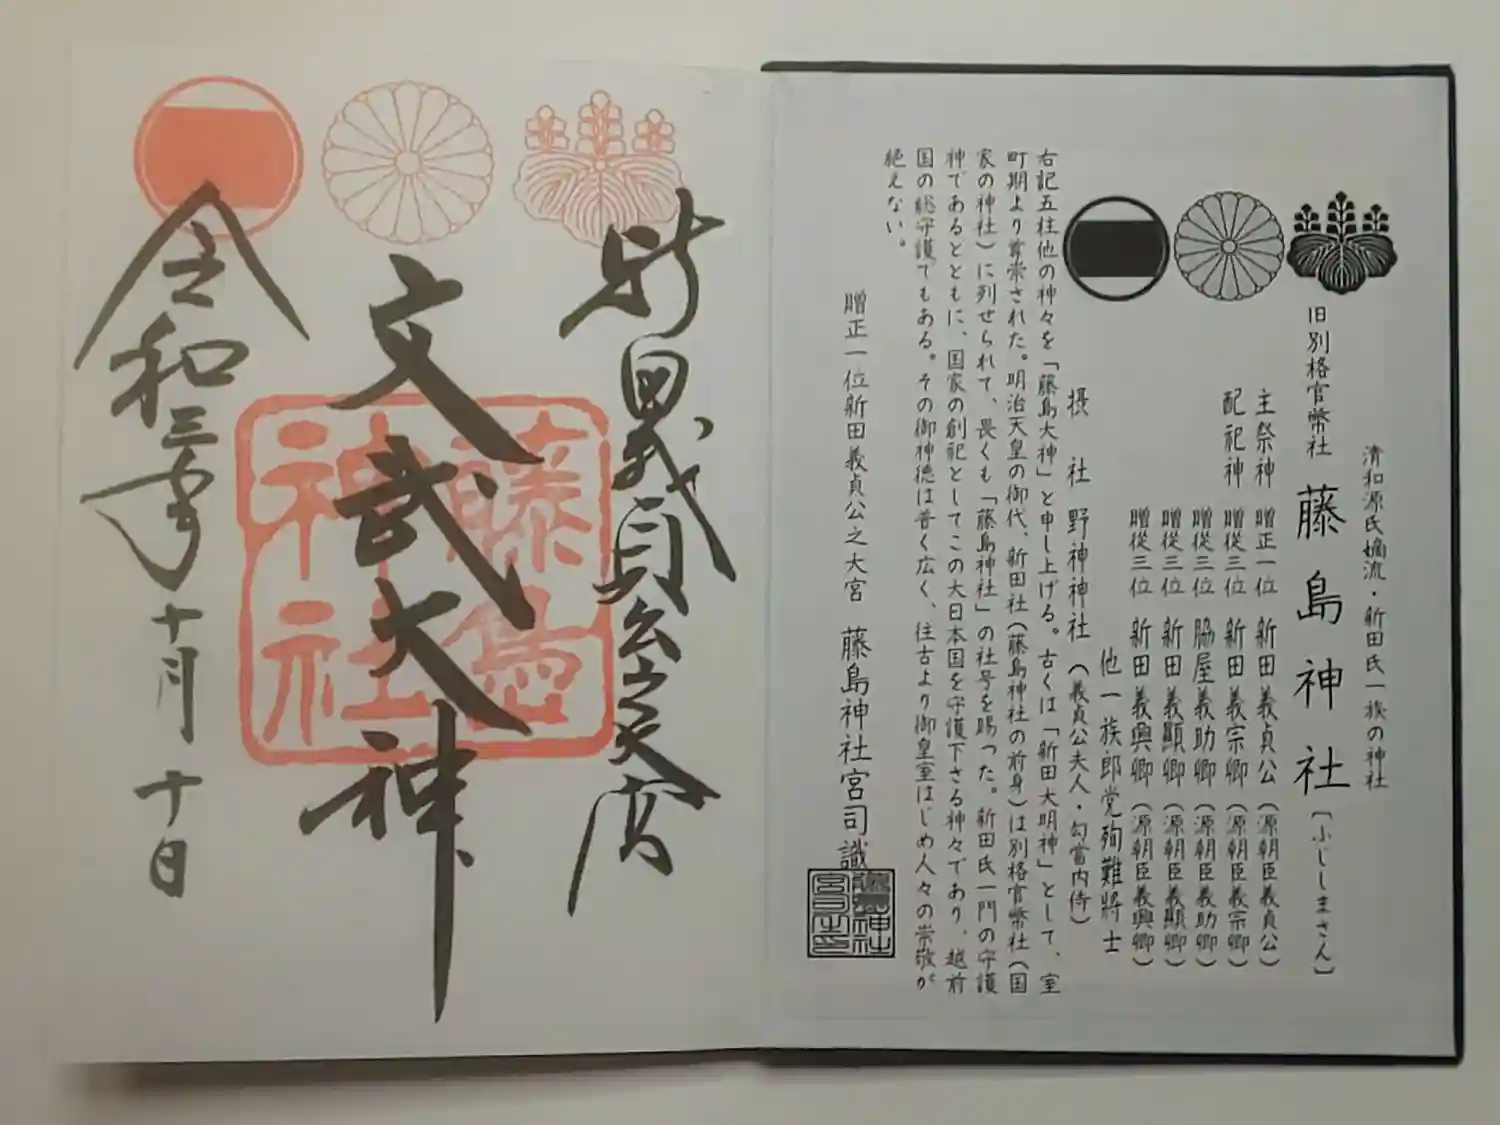 清和源氏嫡流・新田氏一族の神社
旧別格官幣社 藤島神社(ふじしまさん)
主祭神 贈正一位 新田義貞公(源朝臣義貞公)
配祀神 贈従三位 新田義宗卿(源朝臣義宗卿)
贈従三位 脇屋義助卿(源朝臣義助卿)
贈従三位 新田義顯卿(源朝臣義顯卿)
贈従三位 新田義興卿(源朝臣義興卿)
他一族郎党殉難將士
摂社 野神神社(義貞公夫人・勾當内侍)
右記五柱他の神々を「藤島大神」と申し上げる。古くは「新田大明神」として、室
町期より尊崇された。明治天皇の御代、新田社(藤島神社の前身)は別格官幣社(国
家の神社)に列せられて、畏くも「藤島神社」の社号を賜った。新田氏一門の守護
神であるとともに、国家の創祀としてこの大日本国を守護下さる神々であり、越前
国の総守護でもある。その御神徳は普く広く、往古より御皇室はじめ人々の崇敬が
絶えない。
贈正一位新田義貞公之大宮 藤島神社宮司識
藤島神社
宮司之印
新田義貞公之大宮
文武大神
藤島
神社
令和三年十月十日